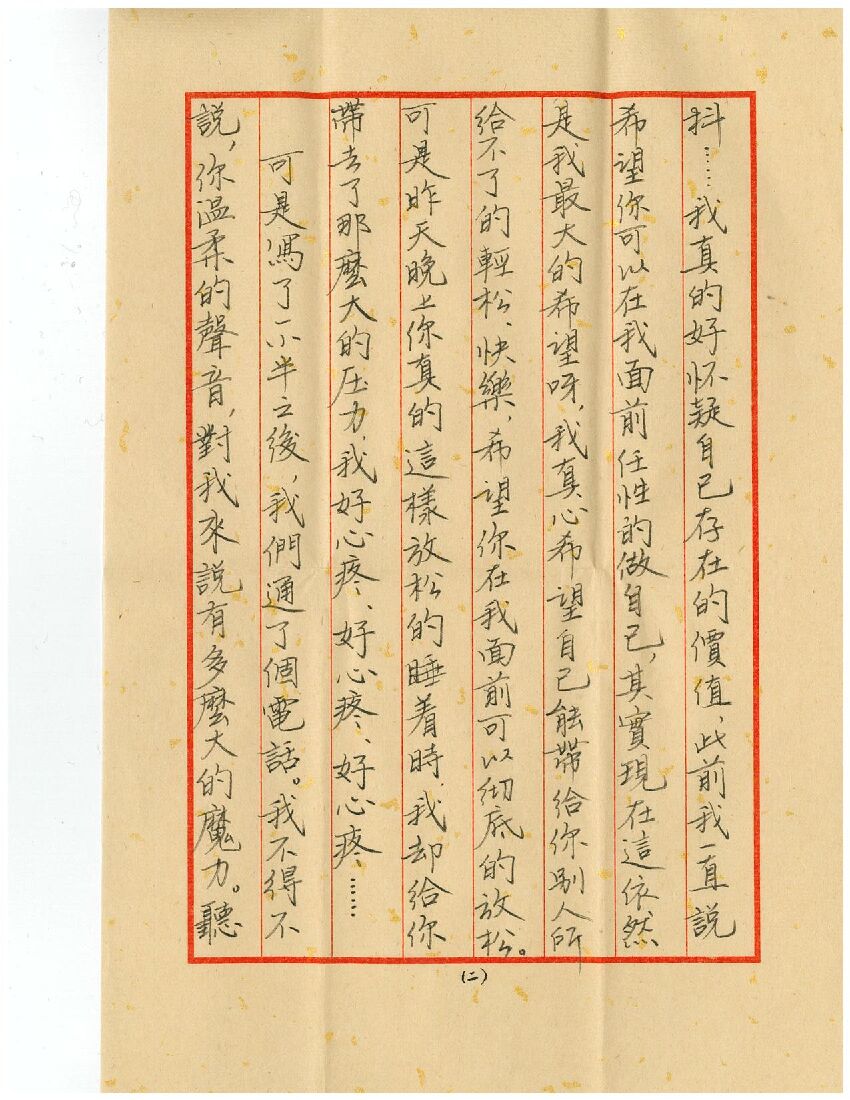 抖……我真的好怀疑自己存在的價值，此前我一直説
希望你可以在我面前任性的做自己，其實現在這依然
是我最大的希望呀，我真心希望自己能帶給你别人所
給不了的輕松、快樂，希望你在我面前可以彻底的放松。
可是昨天晚上你真的這樣放松的睡着時，我却給你
帶去了那麼大的压力，我好心疼、好心疼、好心疼……
可是寫了一半之後，我們通了個電話。我不得不
説，你温柔的聲音，對我來説有多麼大的魔力。聽
(二)